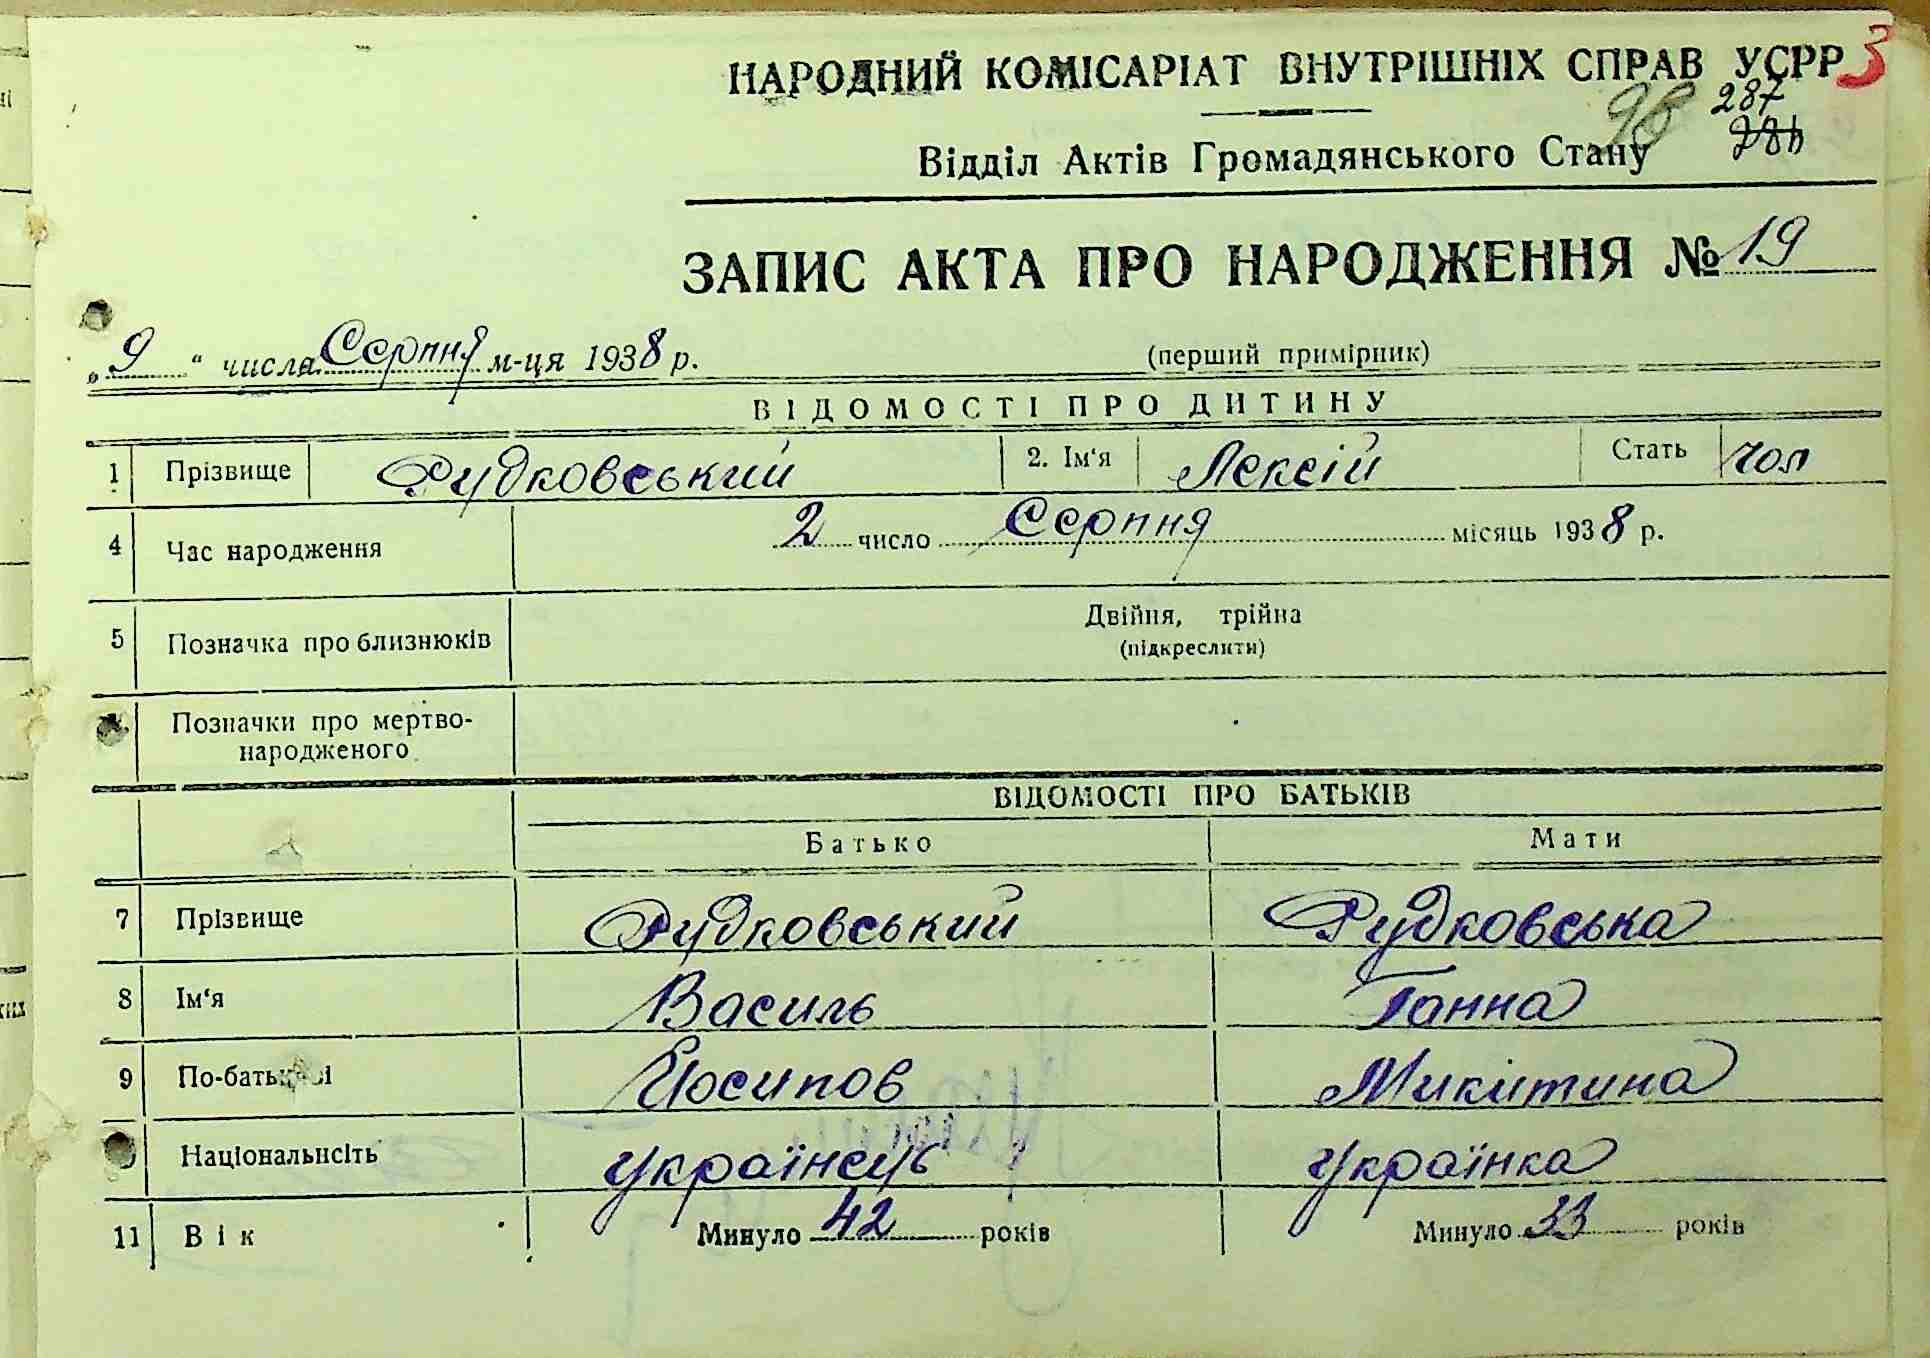 3
НАРОДНИЙ КОМІСАРІАТ ВНУТРІШНІХ СПРАВ УСРР
98 287
Відділ Актів Громадянського Стану
ЗАПИС АКТА ПРО НАРОДЖЕННЯ № 19
„9“ числа Серпня м-ця 1938 р. (перший примірник)
ВІДОМОСТІ ПРО ДИТИНУ
1 Прізвище Рудковський 2. Ім'я Лексій Стать чол
4 Час народження 2 число Серпня місяць 1938 р.
5 Позначка про близнюків Двійня, трійна
(підкреслити)
Позначки про мертво-
народженого
ВІДОМОСТІ ПРО БАТЬКІВ
Батько Мати
7 Прізвище Рудковський Рудковська
8 Ім'я Василь Ганна
9 По-батькові Йосипов Микитина
Національнсіть українець українка
11 Вік Минуло 42 років Минуло 33 років